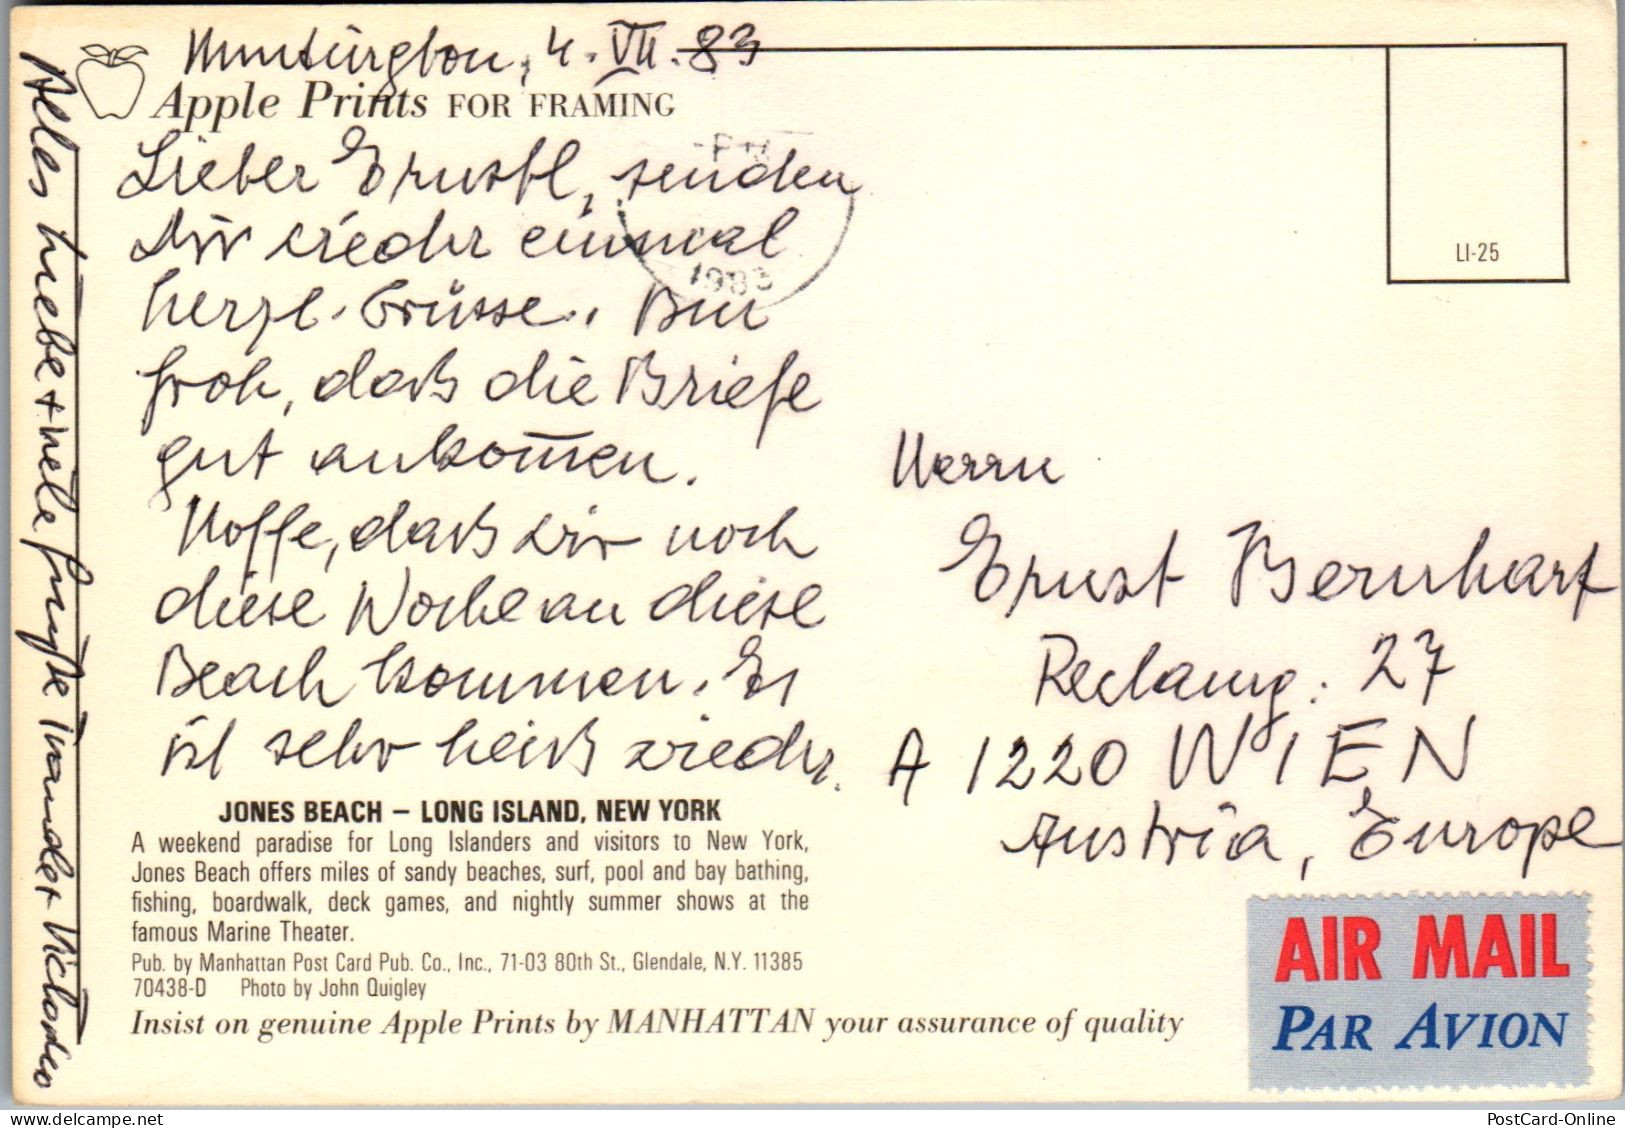 Huntington, 4. VII. 83
Apple Prints FOR FRAMING
Lieber Ernstl, senden
Dir wieder einmal
herzl. Grüsse. Bin
froh, daß die Briefe
gut ankom̅en.
Hoffe, daß wir noch
diese Woche an diese
Beach kommen. Es
ist sehr heiß wieder.
Alles Liebe + viele
PM
1983
LI-25
Herrn
Ernst Bernhart
27
A 1220 WIEN
Austria, Europe
JONES BEACH – LONG ISLAND, NEW YORK
A weekend paradise for Long Islanders and visitors to New York,
Jones Beach offers miles of sandy beaches, surf, pool and bay bathing,
fishing, boardwalk, deck games, and nightly summer shows at the
famous Marine Theater.
Pub. by Manhattan Post Card Pub. Co., Inc., 71-03 80th St., Glendale, N.Y. 11385
70438-D Photo by John Quigley
Insist on genuine Apple Prints by MANHATTAN your assurance of quality
AIR MAIL
PAR AVION
PostCard-Online